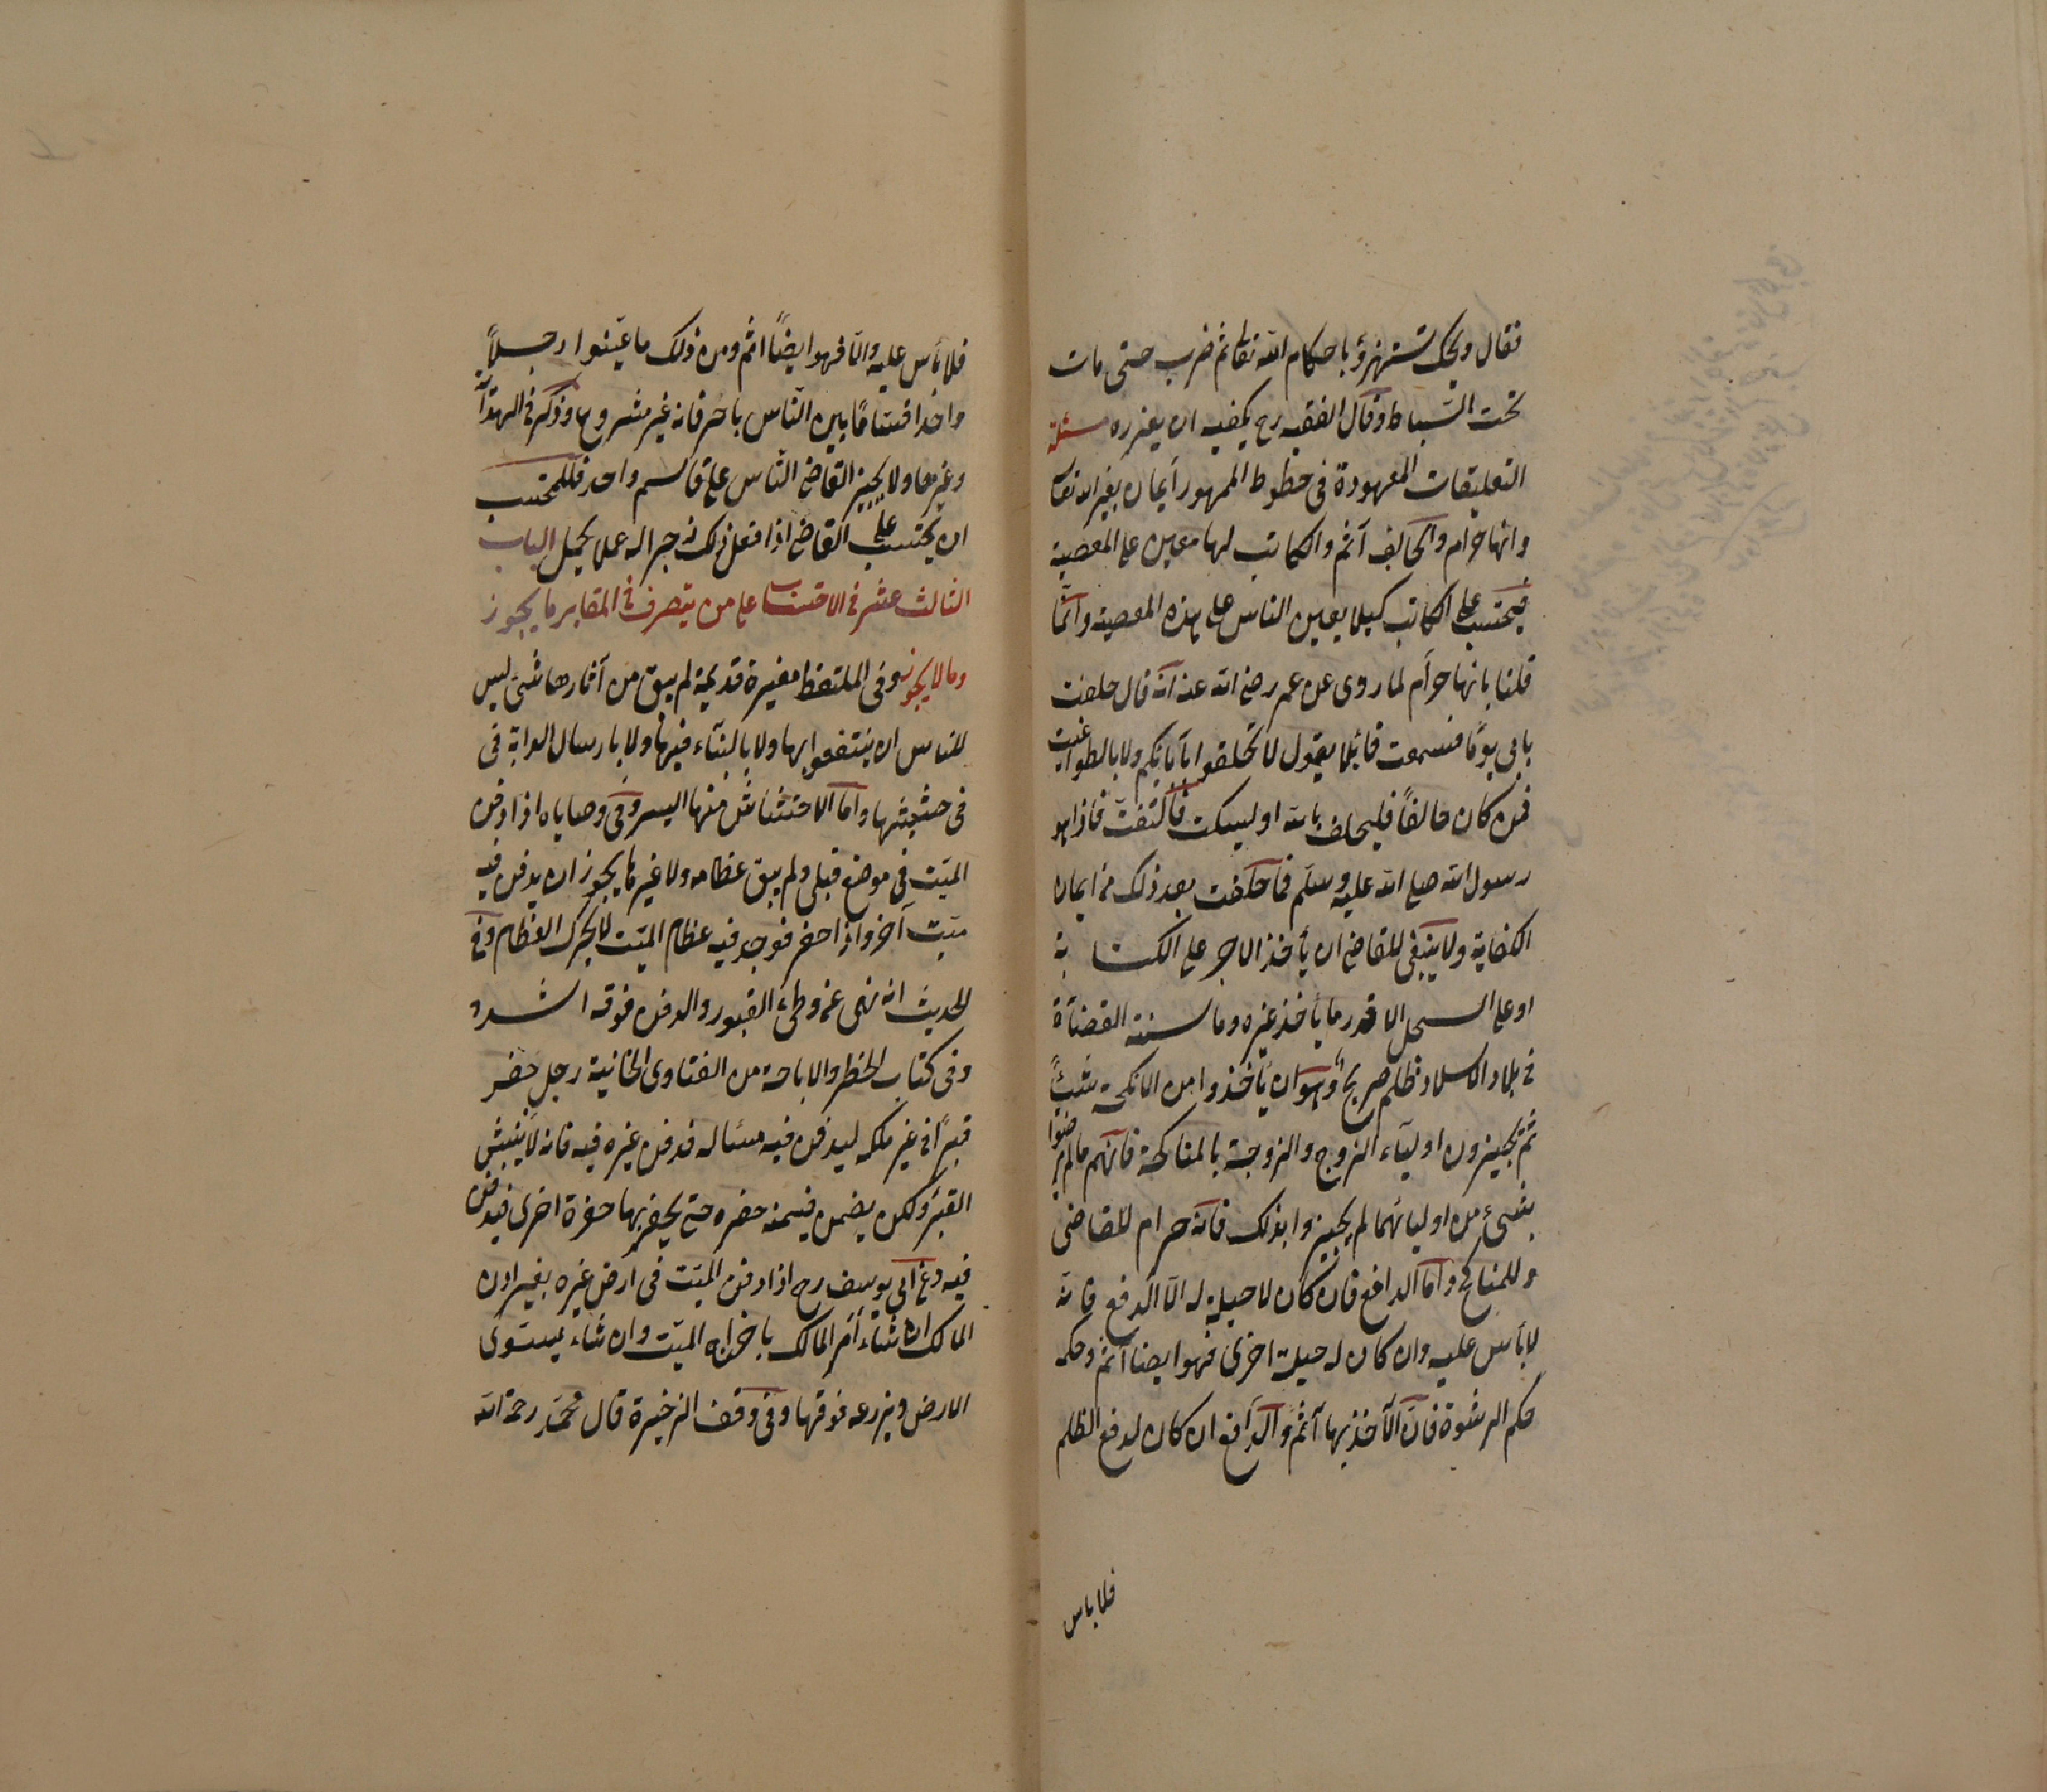 فقال ويحك تستهزؤ باحكام الله تعالى ثم ضرب حتى مات
تحت السياط وقال الفقيه رح يكفيه ان يعزره مسئلة
التعليقات المعهودة فى خطوط المهور أيمان بغير الله تعالى
وانها حرام والحالف آثم والكاتب لها معين على المعصية
فيحتسب على الكاتب كيلا يعين الناس على هذه المعصية وانما
قلنا بانها حرام لما روى عن عمر رضى الله عنه انه قال حلفت
بابى يومًا فسمعت قائلا يقول لا تحلفوا بآبائكم ولا بالطواغيت
فمن كان حالفًا فليحلف بالله او ليسكت فالتفت فاذا هو
رسول الله صلى الله عليه وسلم فما حلفت بعد ذلك من ايمان
الكفاية ولا ينبغى للقاضى ان يأخذ الاجر على الكتابة
او على السجل الا قدر ما يأخذ غيره وما سنته القضاة
فى بلاد الاسلام ظلم صريح وهو ان يأخذوا من الانكحة شيئًا
ثم يجيزون اولياء الزوج والزوجة بالمناكحة فانهم ما لم يرضوا
بشىء من اوليائهما لم يجيزوا بذلك فانه حرام للقاضى
وللمناكح واما الدافع فان كان لا حيلة له الا الدفع فانه
لا بأس عليه وان كان له حيلة اخرى فهو ايضا آثم وحكمه
حكم الرشوة فان الآخذ بها آثم والدافع ان كان لدفع الظلم
فلا باس
فلا بأس عليه والا فهو ايضًا اثم ومن ذلك ما عينوا رجلاً
واخذ اقتسامًا بين الناس باجر فانه غير مشروع وذكر فى الهداية
وغيرها ولا يجيز القاضى الناس على قاسم واحد فللمحتسب
ان يحتسب على القاضى اذا فعل ذلك زجرا له عما يحيل الباب
الثالث عشر فى الاحتساب على من يتصرف فى المقابر ما يجوز
وما لا يجوز وفى الملتقط مقبرة قديمة لم يبق من آثارها شىء ليس
للناس ان ينتفعوا بها ولا بالبناء فيها ولا بارسال الدابة فى
فى حشيشها واما الاحتشاش منها اليسر وفى وصاياه اذا دفن
الميت فى موضع فبلى ولم يبق عظامه ولا غير ما يجوز ان يدفن فيه
ميت آخر واذا حفر فوجد فيه عظام الميت لا يحرك العظام وفى
الحديث انه نهى عن وطىء القبور والدفن فوقه اشد
وفى كتاب الحظر والاباحة من الفتاوى الخانية رجل حفر
قبرًا فى غير ملكه ليدفن فيه ميتا له فدفن غيره فيه فانه لا ينبش
القبر ولكن يضمن قيمة حفره حتى يحفر بها حفرة اخرى فيدفن
فيه وعن ابى يوسف رح اذا دفن الميت فى ارض غيره بغير اذن
المالك ان شاء أمر المالك باخراج الميت وان شاء يستوى
الارض ويزرعه فوقها وفى وقف الذخيرة قال محمد رحمة الله